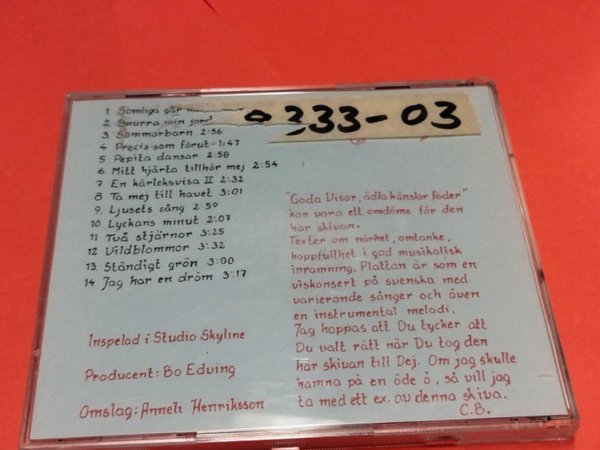 1 Somliga går
2 Snurra min jord
333-03
3 Sommarbarn 2:56
4 Precis som förut-1:47
5 Pepita dansar 2:58
6 Mitt hjärta tillhör mej 2:54
7 En kärleksvisa II 2:32
8 Ta mej till havet 3:01
9 Ljusets sång 2:59
10 Lyckans minut 2:07
11 Två stjärnor 3:25
12 Vildblommor 3:32
13 Ständigt grön 3:00
14 Jag har en dröm 3:17
Inspelad i Studio Skyline
Producent: Bo Edving
Omslag: Anneli Henriksson
"Goda Visor, ädla känslor föder"
kan vara ett omdöme för den
här skivan.
Texter om närhet, omtanke,
hoppfullhet i god musikalisk
inramning. Plattan är som en
viskonsert på svenska med
varierande sånger och även
en instrumental melodi.
Jag hoppas att Du tycker att
Du valt rätt när Du tog den
här skivan till Dej. Om jag skulle
hamna på en öde ö, så vill jag
ta med ett ex. av denna skiva.
C.B.